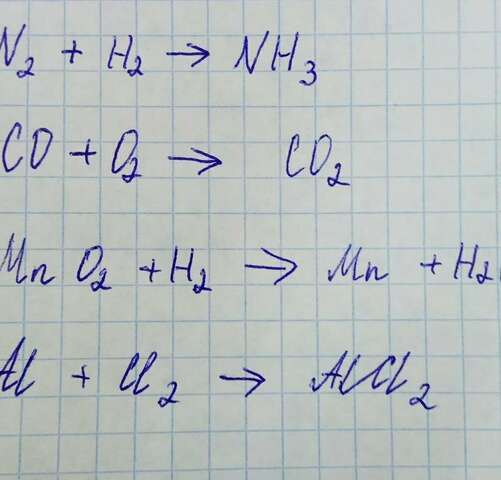 N₂ + H₂ → NH₃
CO + O₂ → CO₂
Mn O₂ + H₂ → Mn + H₂
Al + Cl₂ → AlCl₂